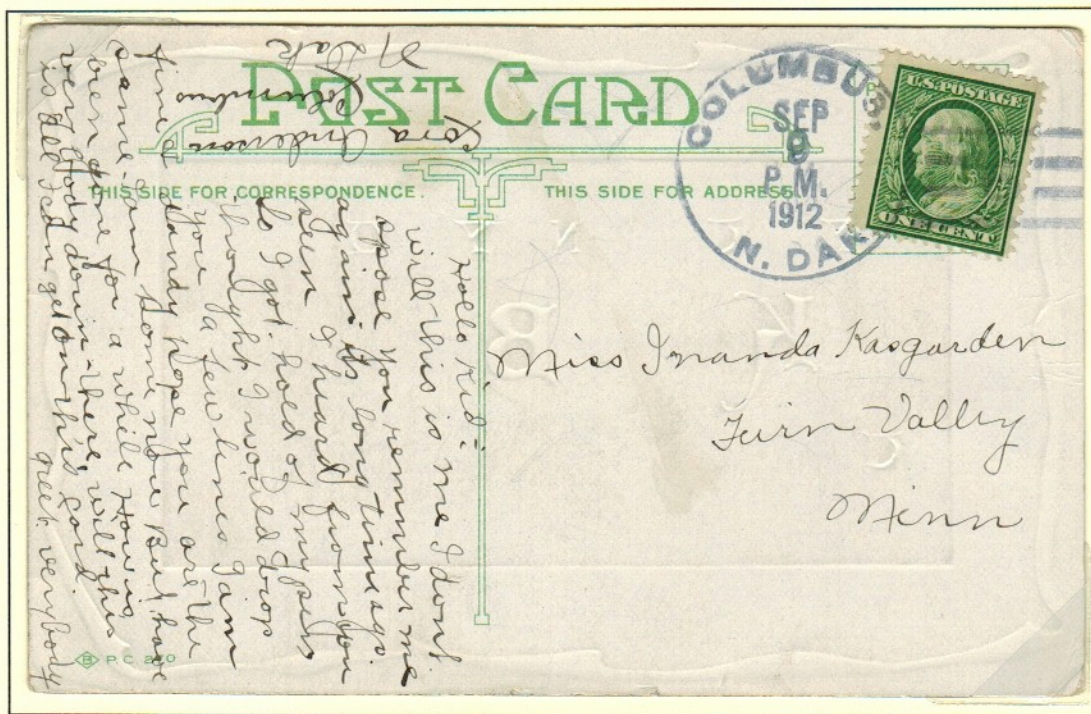 POST CARD
THIS SIDE FOR CORRESPONDENCE.
THIS SIDE FOR ADDRESS.
COLUMBUS,
SEP
9
P.M.
1912
N. DAK.
U.S. POSTAGE
ONE CENT
Miss Inanda Kasgarden
Twin Valley
Minn
Hello Kid:
will this is me I dont
spose you remember me
again its long time ago
seen I heard from you
So I got hold of my pen
thought I would drop
you a few lines I am
dandy hope you are the
same. I am home now But have
been gone for a while How is
very body down there, will this
is all I can get on this card.
greet verybody
from
Cora Anderson
Columbus
N Dak
P C 210